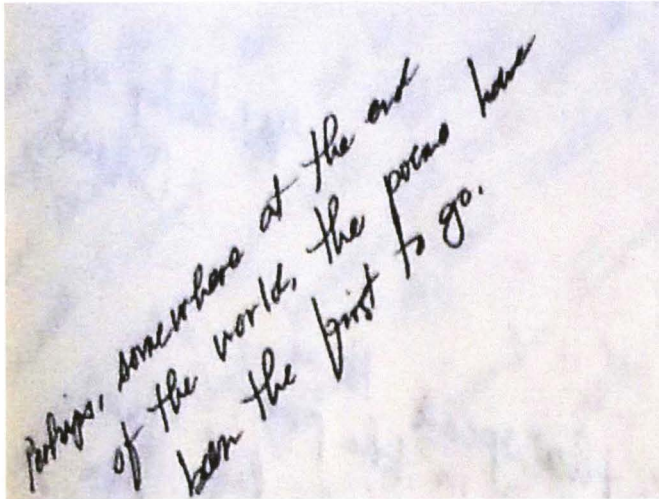 Perhaps, somewhere at the end
of the world, the poems have
been the first to go.